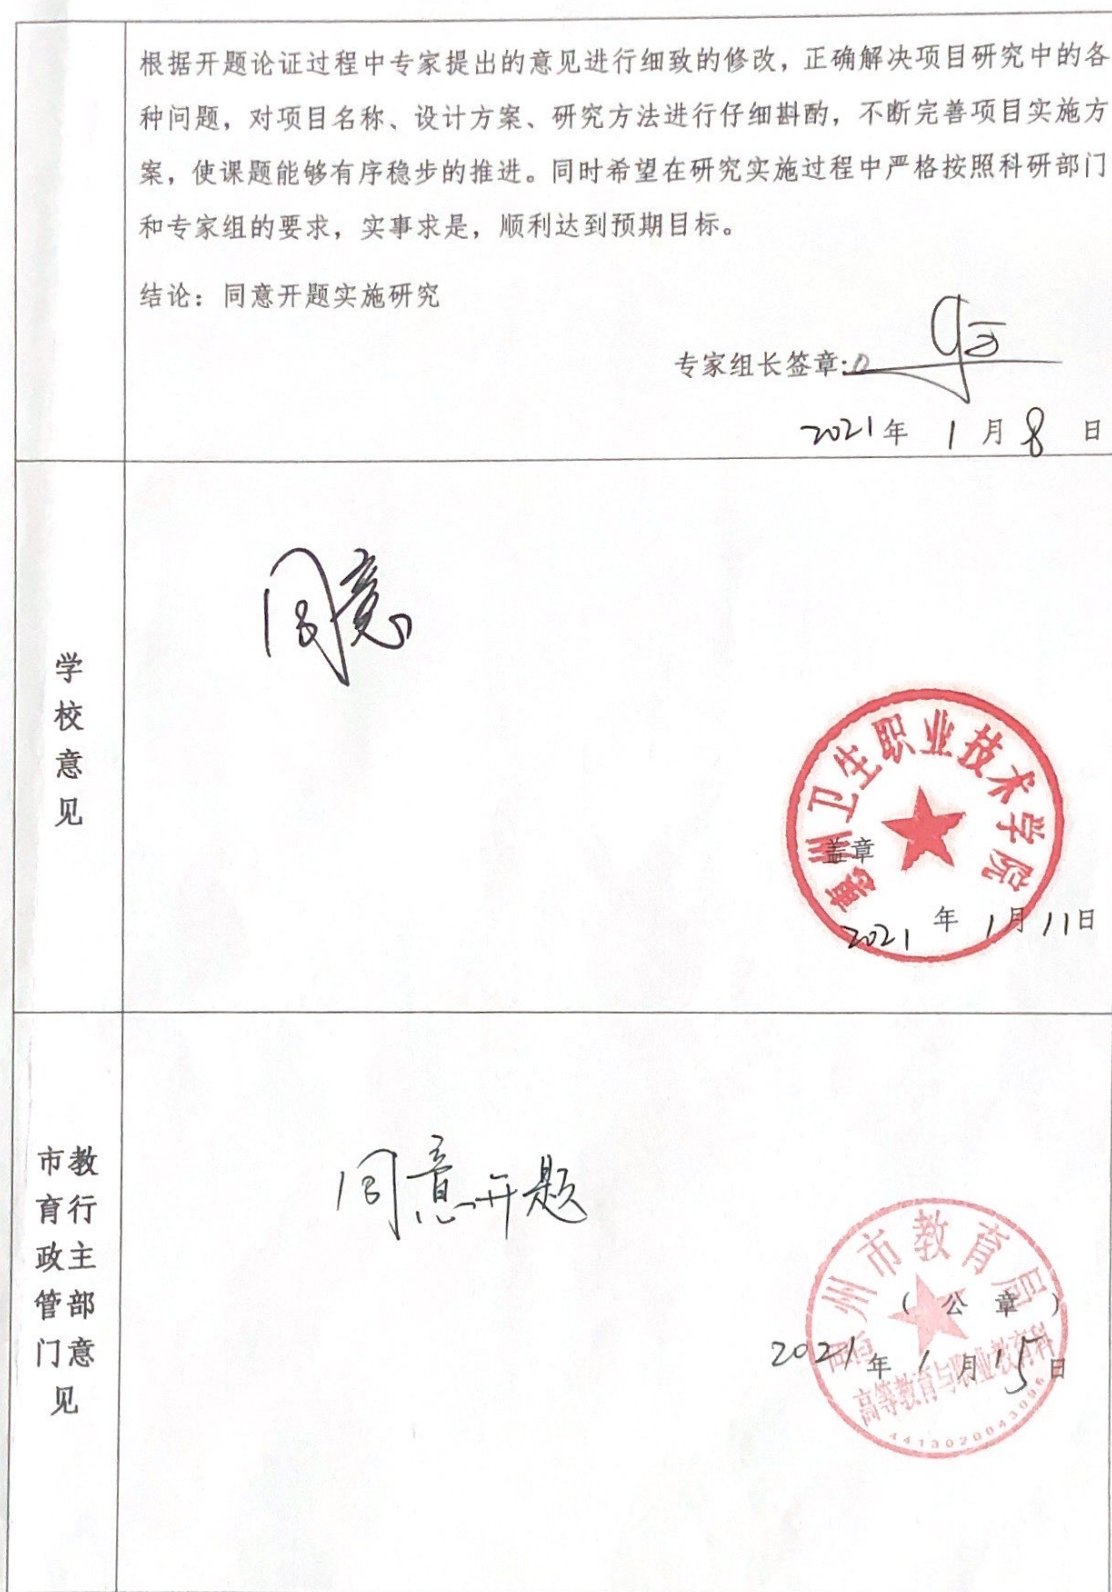 根据开题论证过程中专家提出的意见进行细致的修改，正确解决项目研究中的各
种问题，对项目名称、设计方案、研究方法进行仔细斟酌，不断完善项目实施方
案，使课题能够有序稳步的推进。同时希望在研究实施过程中严格按照科研部门
和专家组的要求，实事求是，顺利达到预期目标。
结论：同意开题实施研究
专家组长签章:
2021年 1月8 日
学校意见
同意
惠州卫生职业技术学院
盖章
2021 年 1月11日
市教育行政主管部门意见
同意开题
惠州市教育局
（公章）
2021年1月15日
高等教育与职业教育科
4413020043096